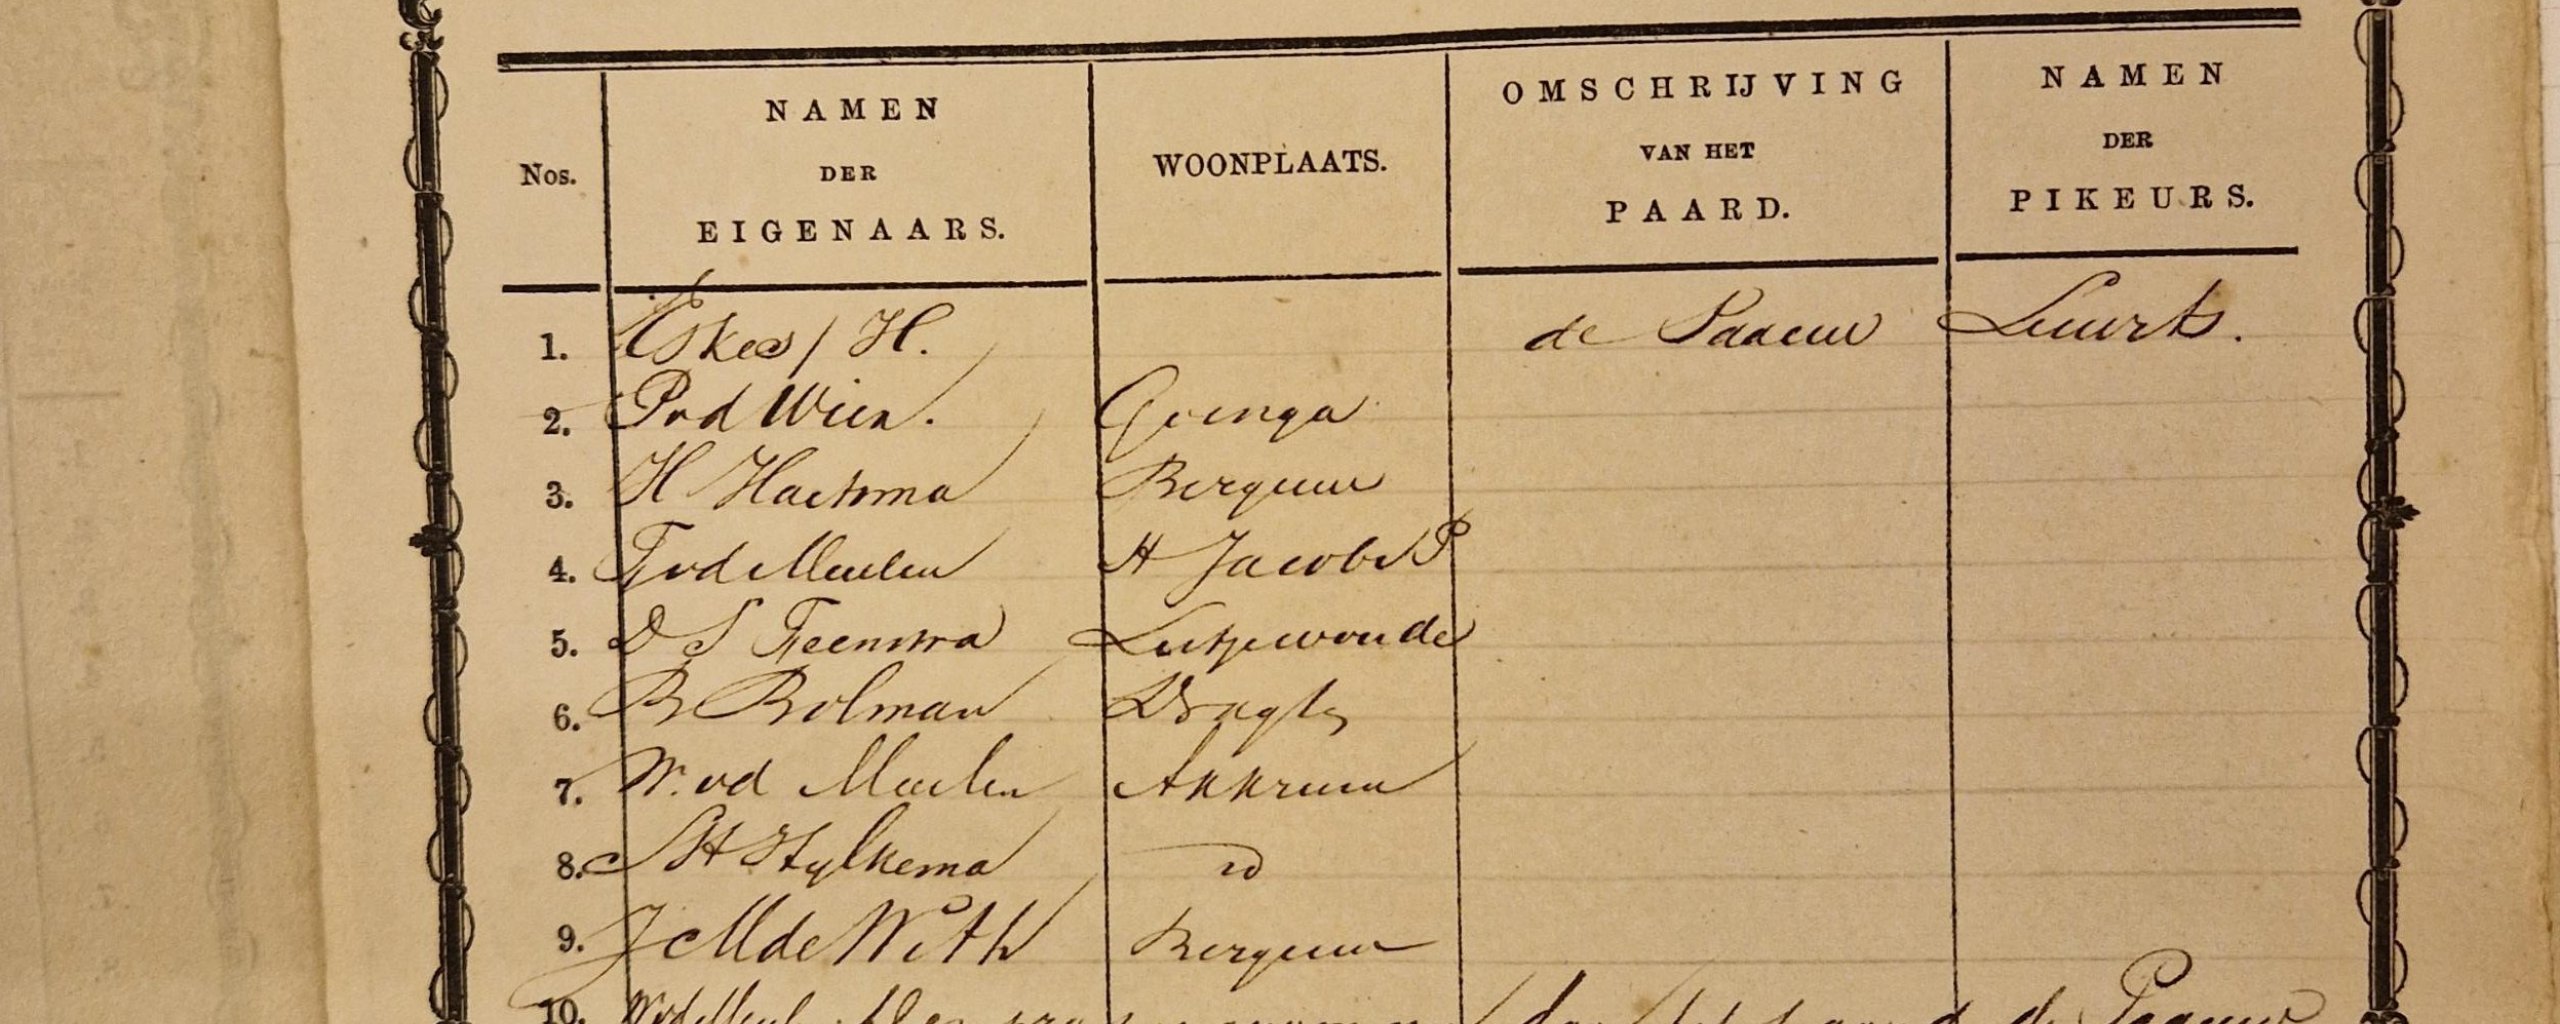 Nos. NAMEN DER EIGENAARS. WOONPLAATS. OMSCHRIJVING VAN HET PAARD. NAMEN DER PIKEURS.
1. Eskes / H. de Paauw Luurts.
2. P vd Wien. Goinga
3. H Haitsma Bergum
4. T vd Meulen St JacobsP
5. D S Feenstra Lutjewoude
6. B Bolman Dragten
7. W. vd Meulen Akkrum
8. S H Hylkema id
9. J M de With Bergum
10. de Paauw